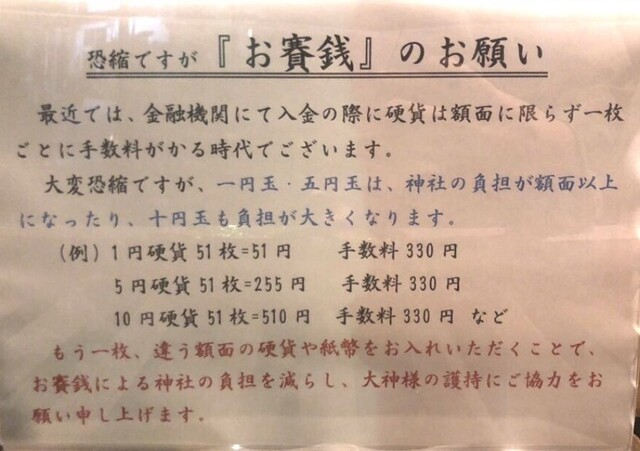 恐縮ですが『お賽銭』のお願い
最近では、金融機関にて入金の際に硬貨は額面に限らず一枚
ごとに手数料がかる時代でございます。
大変恐縮ですが、一円玉・五円玉は、神社の負担が額面以上
になったり、十円玉も負担が大きくなります。
(例)1円硬貨51枚=51円 手数料330円
5円硬貨51枚=255円 手数料330円
10円硬貨51枚=510円 手数料330円 など
もう一枚、違う額面の硬貨や紙幣をお入れいただくことで、
お賽銭による神社の負担を減らし、大神様の護持にご協力をお
願い申し上げます。